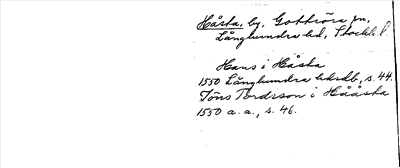 Håsta, by, Gottröra sn,
Långhundra hd, Stockh. l.
Hans i Håsta
1550 Långhundra hdrdb, s. 44.
Jöns Tordsson i Hååsta
1550 a.a., s. 46.